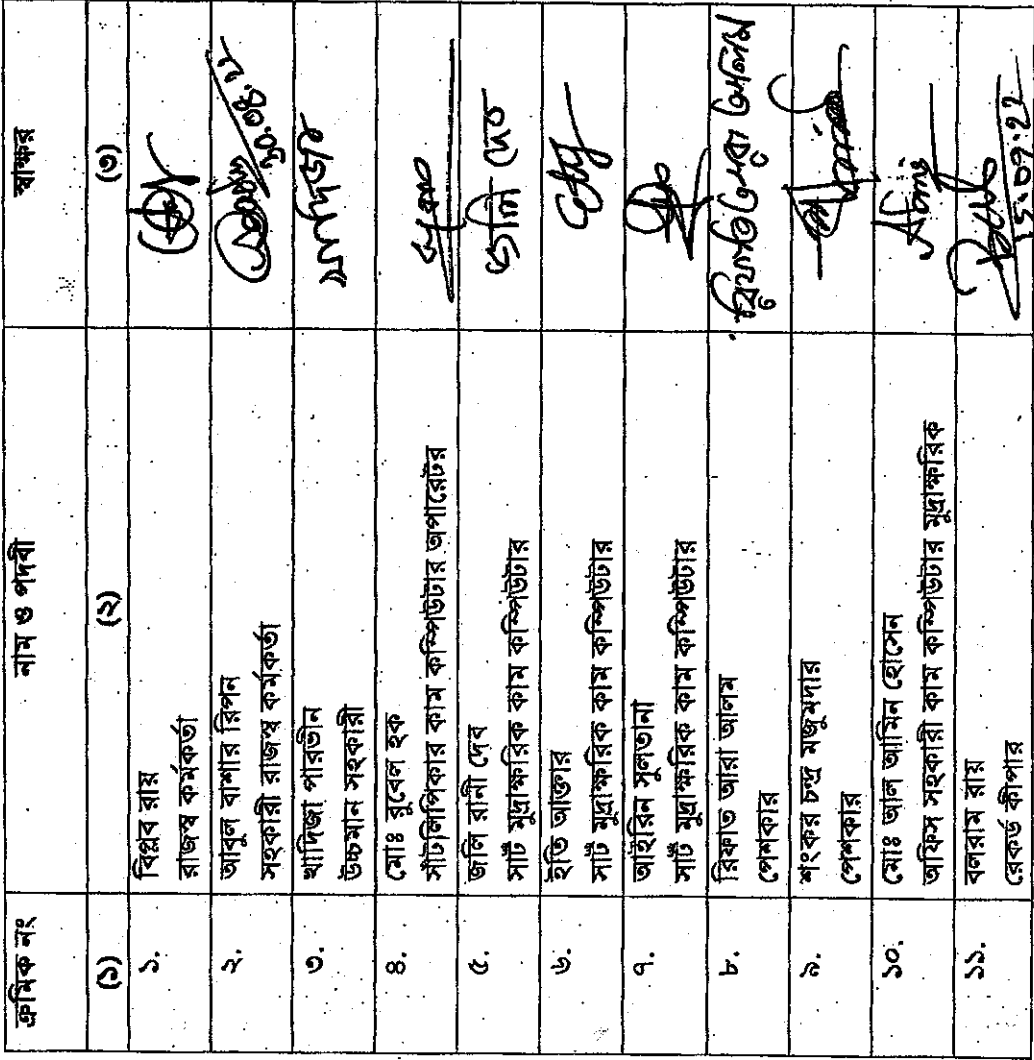 ক্রমিক নং নাম ও পদবী স্বাক্ষর
(১) (২) (৩)
১. বিপ্লব রায়
রাজস্ব কর্মকর্তা
২. আবুল বাশার রিপন
সহকারী রাজস্ব কর্মকর্তা
৩. খাদিজা পারভীন
উচ্চমান সহকারী
খাদিজা
৪. মোঃ রুবেল হক
সাঁটলিপিকার কাম কম্পিউটার অপারেটর
৫. জলি রানী দেব
সাট মুদ্রাক্ষরিক কাম কম্পিউটার
জলি দেব
৬. ইতি আক্তার
সাট মুদ্রাক্ষরিক কাম কম্পিউটার
৭. আইরিন সুলতানা
সাট মুদ্রাক্ষরিক কাম কম্পিউটার
৮. রিফাত আরা আলম
পেশকার
৯. শংকর চন্দ্র মজুমদার
পেশকার
১০. মোঃ আল আমিন হোসেন
অফিস সহকারী কাম কম্পিউটার মুদ্রাক্ষরিক
Amin
১১. বলরাম রায়
রেকর্ড কীপার
15.09.22